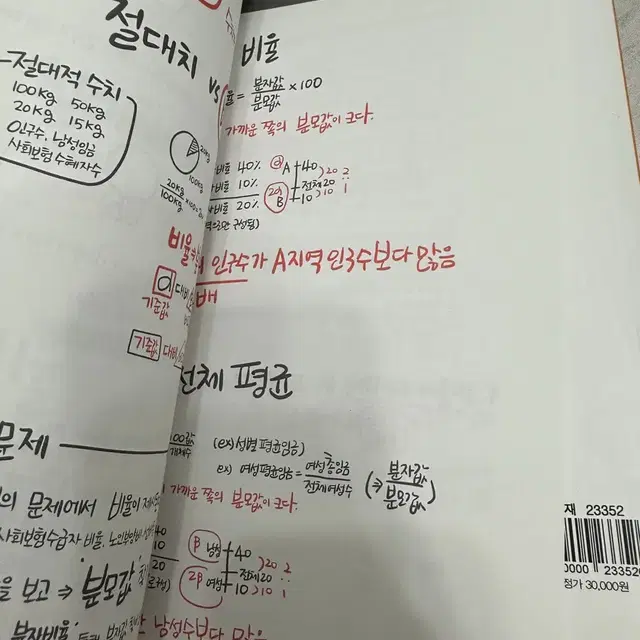 절대치 vs
절대적 수치
100kg 50kg
20kg 15kg
인구수, 남성임금
사회보험 수혜자수
20kg
100kg
20kg
100kg
기준값
기준값 대비
문제
문제에서 비율이
사회보험수급자 비율, 노인부양비
보고 ⇒ 분모값
분자비율,
비율
율 = 분자값/분모값 ×100
가까운 쪽의 분모값이 크다.
비율 40% ⓐ A 40
비율 10% 전체 20
비율 20% B 10
20 2
10 1
인구수가 A지역 인구수보다 많음
배
전체 평균
(ex) 성별 평균임금)
ex) 여성평균임금 = 여성총임금/전체여성수 (⇒ 분자값/분모값)
가까운 쪽의 분모값이 크다.
40 β 남성 40
10 전체 20
20 2β 여성 10
20 2
10 1
남성수보다 많음
재 23352
정가 30,000원